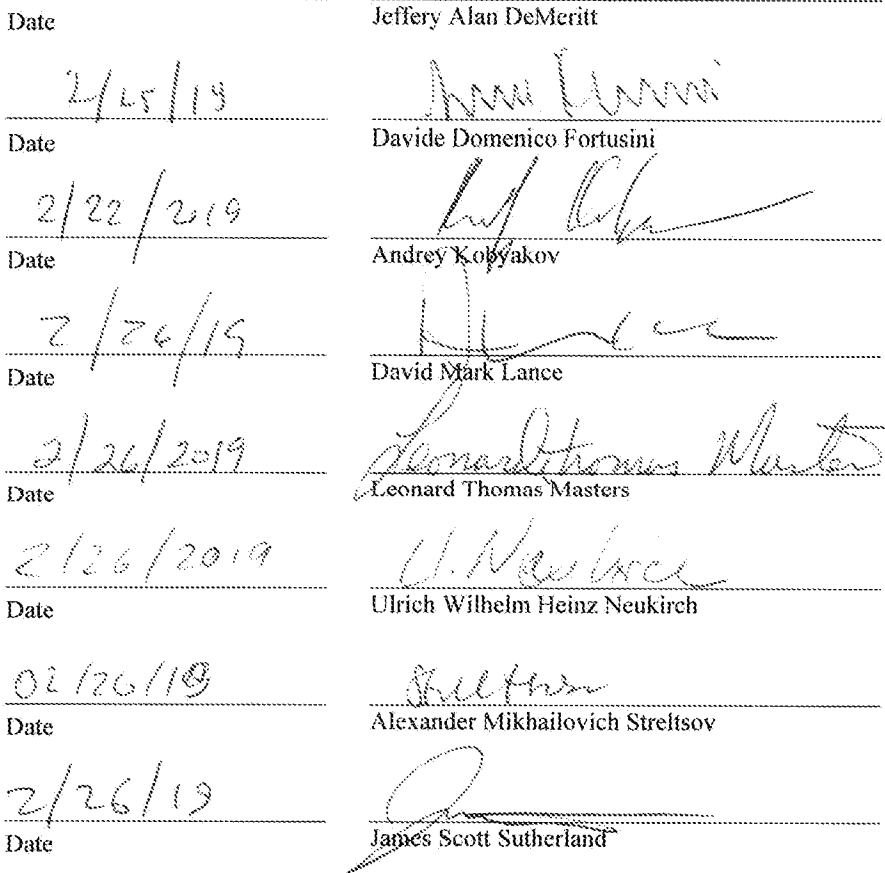 Date Jeffery Alan DeMeritt
2/25/19
Date Davide Domenico Fortusini
2/22/2019
Date Andrey Kobyakov
2/26/19
Date David Mark Lance
2/26/2019 Leonard Thomas Masters
Date Leonard Thomas Masters
2/26/2019 U. Neukirch
Date Ulrich Wilhelm Heinz Neukirch
02/26/19 Streltsov
Date Alexander Mikhailovich Streltsov
2/26/19
Date James Scott Sutherland